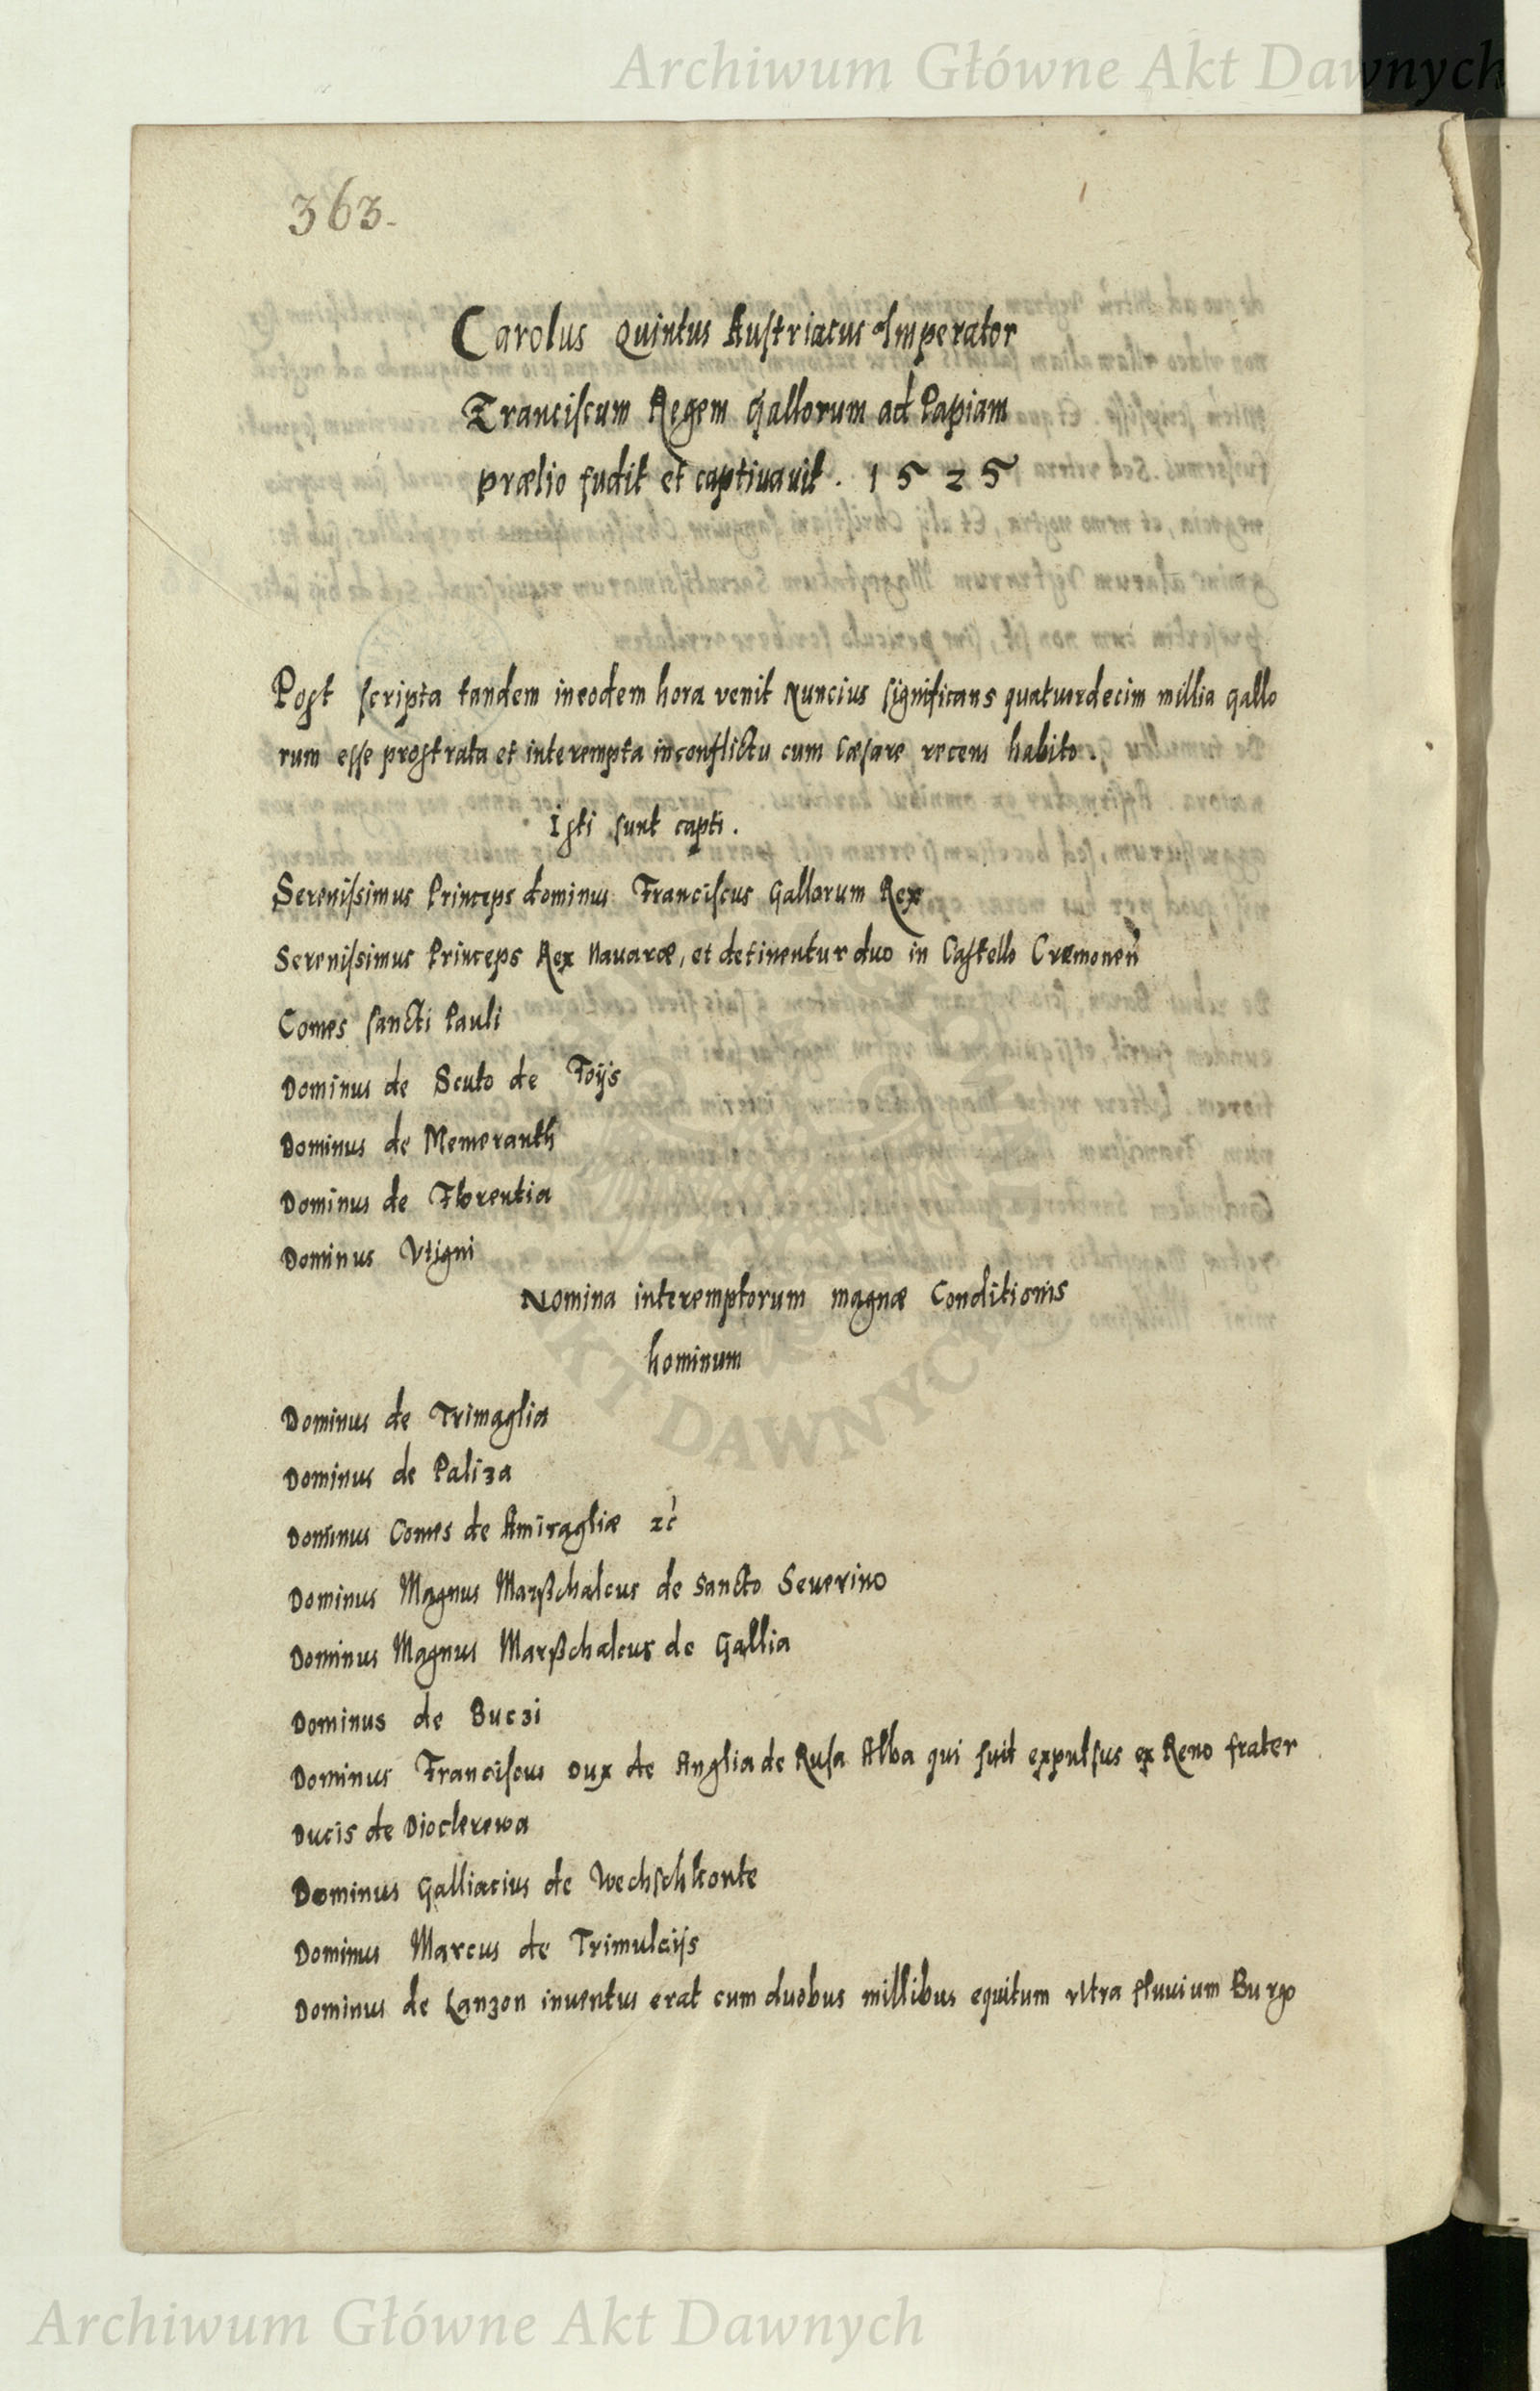 Archiwum Główne Akt Dawnych
363.
Carolus Quintus Austriacus Imperator
Franciscum Regem Gallorum ad Papiam
prælio fudit et captivavit. 1525
Post scripta tandem ineodem hora venit Nuncius significans quatuordecim millia gallo
rum esse prostrata et interempta inconflictu cum Cæsare recens habito.
Isti sunt capti.
Serenissimus Princeps dominus Franciscus Gallorum Rex
Serenissimus Princeps Rex Nauaræ, et detinentur duo in Castello Cremonen̄
Comes sancti Pauli
Dominus de Scuto de Foijs
Dominus de Memeranth
Dominus de Florentia
Dominus Vtigni
Nomina interemptorum magnæ Conditionis
hominum
Dominus de Trimaglia
Dominus de Paliza
Dominus Comes de Amiragliæ &c
Dominus Magnus Marßchalcus de Sancto Severino
Dominus Magnus Marßchalcus de Gallia
Dominus de Buczi
Dominus Franciscus Dux de Anglia de Rusa Alba qui fuit expulsus ex Reno frater
Ducis de Dioclerewa
Dominus Galliacius de Wechschkonte
Dominus Marcus de Trimulcijs
Dominus de Lanzon inventus erat cum duobus millibus equitum vltra fluvium Burgo
AKT DAWNYCH
Archiwum Główne Akt Dawnych